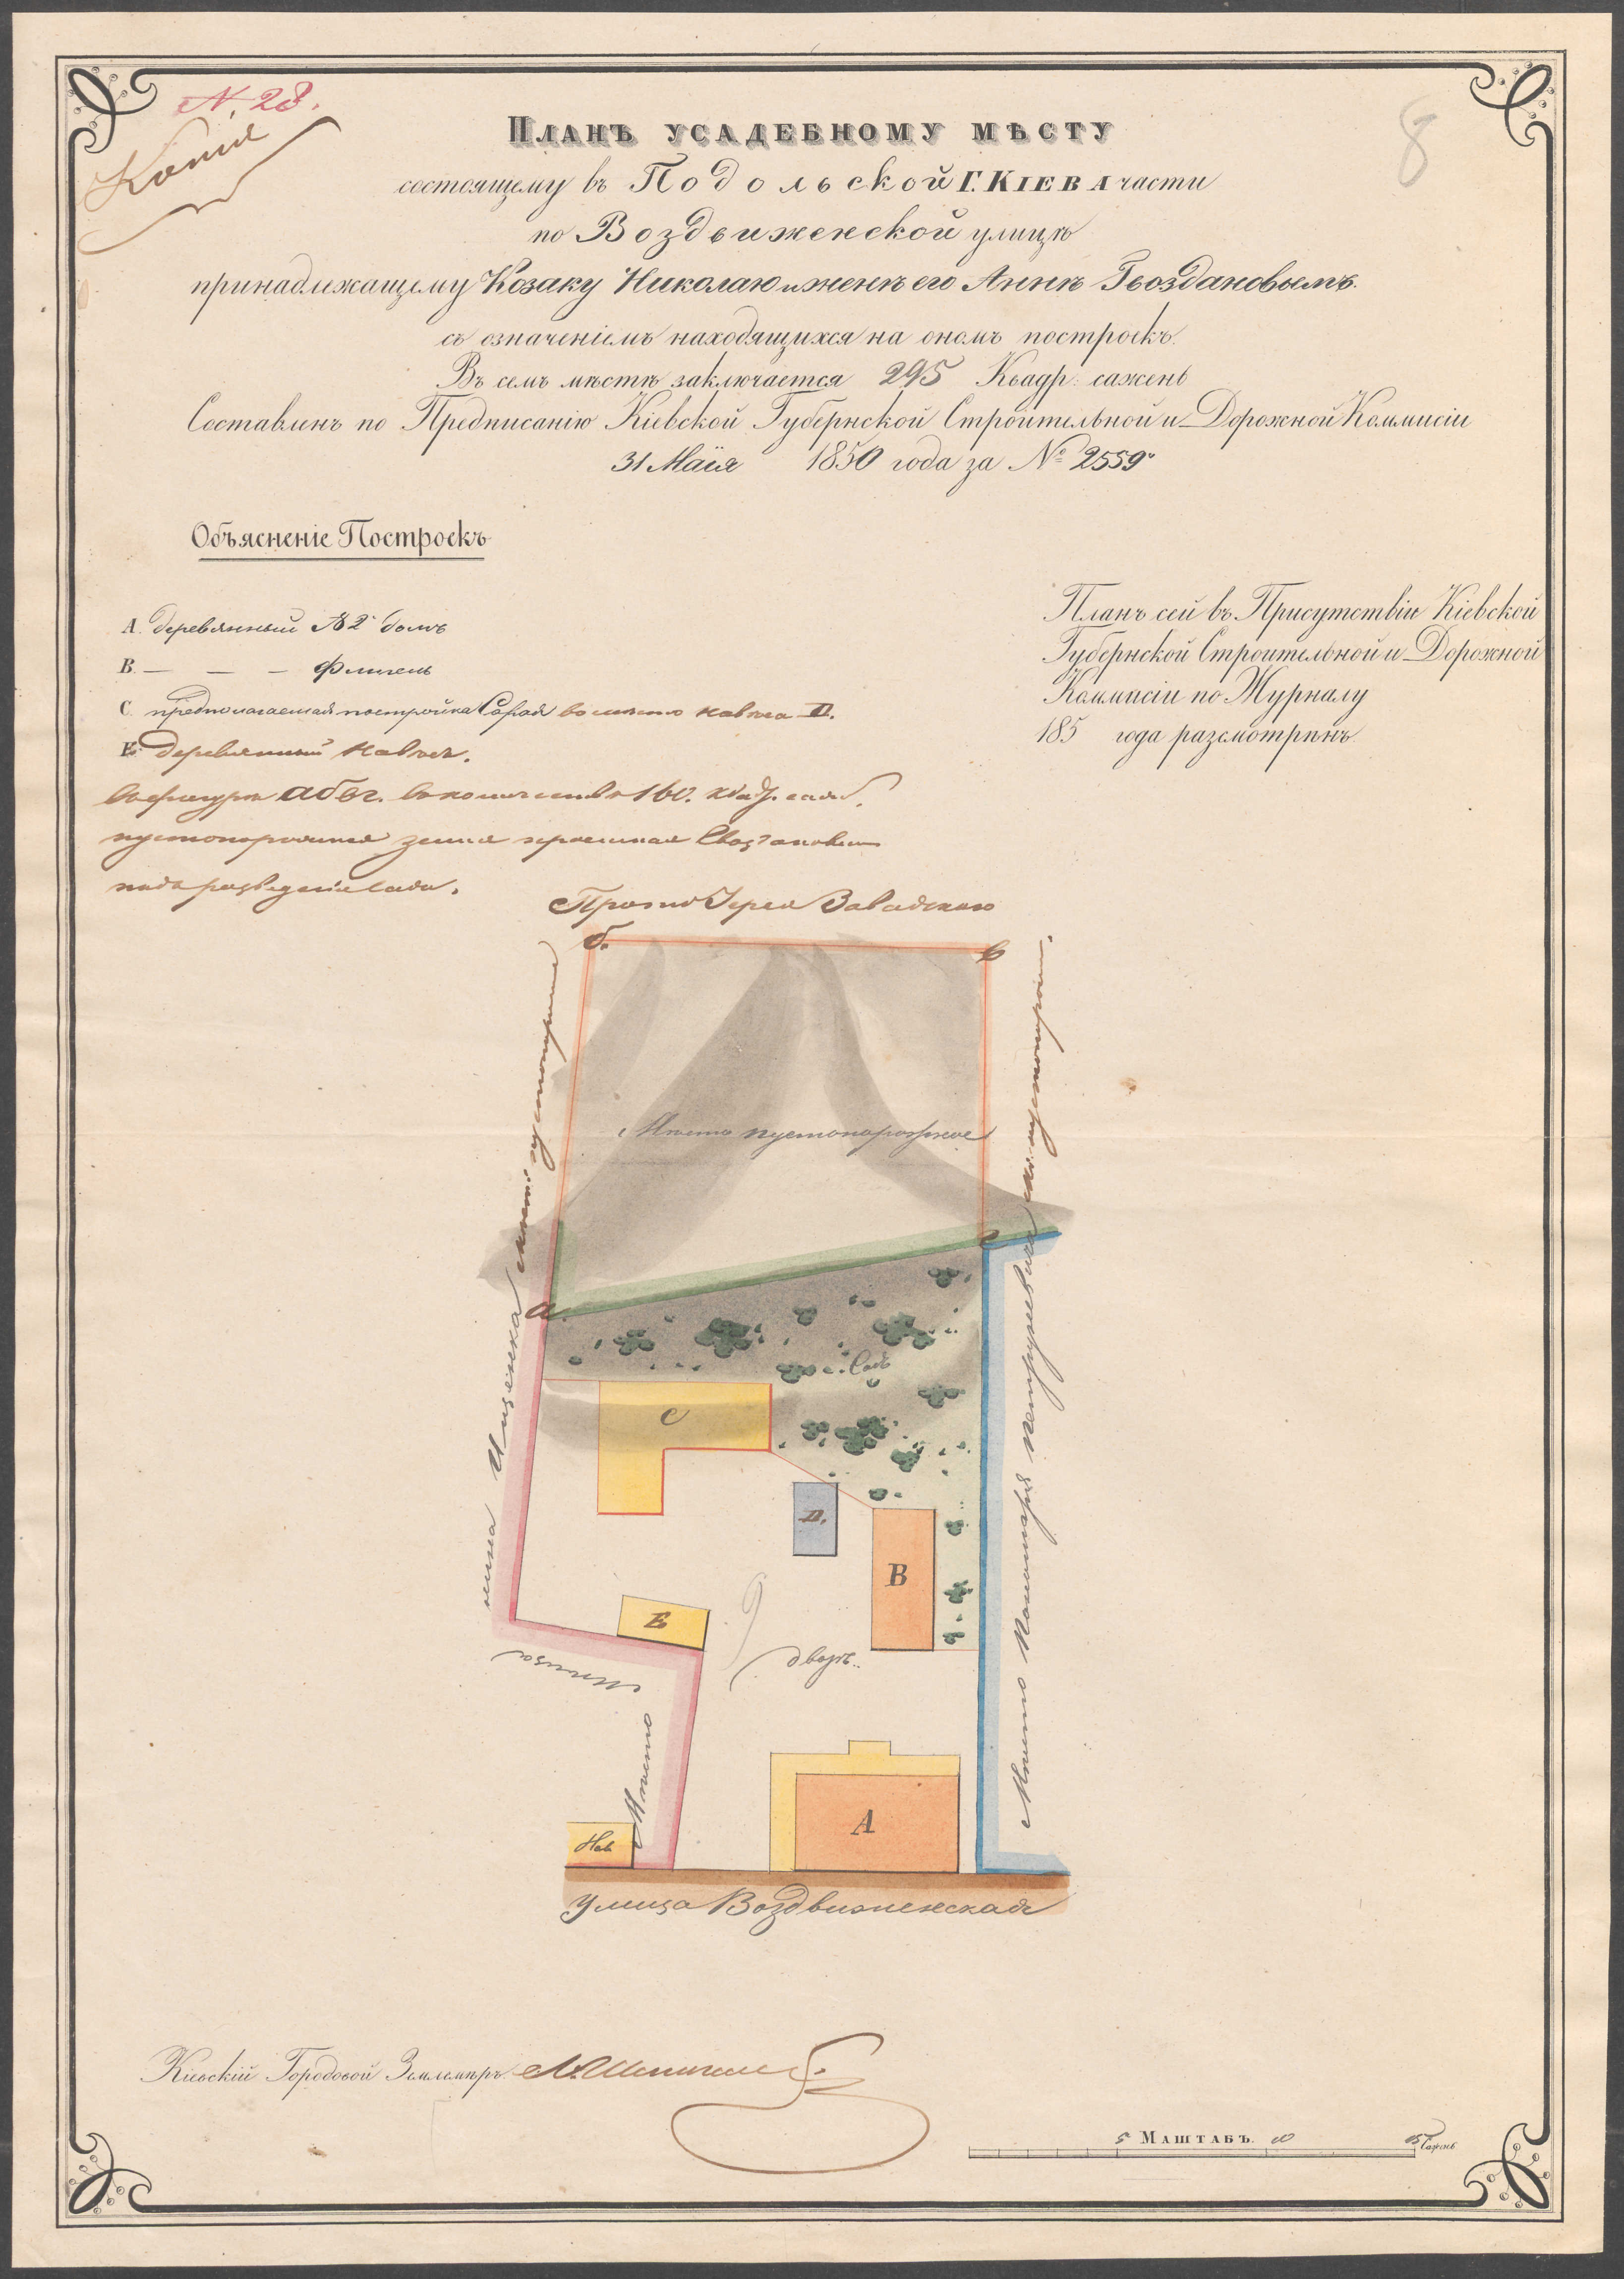 N. 28.
Копія
8
Планъ усадебному мѣсту
состоящему въ Подольской Г. Кіева части
по Воздвиженской улицѣ
принадлежащему Козаку Николаю и женѣ его Аннѣ Гвоздановымъ.
съ означеніемъ находящихся на ономъ построекъ.
Въ семъ мѣстѣ заключается 295 Квадр: сажень
Составленъ по Предписанію Кіевской Губернской Строительной и Дорожной Коммисіи
31 Маія 1850 года за № 2559
Объясненіе Построекъ
А. деревянный № 2 домъ
В. — — — флигель
С. предполагаемая постройка Сарая вместо навѣса D.
Е. деревянный навѣсъ.
въ фигурѣ абвг. въ количествѣ 160. квад. саж.
пустопорожняя земля просимая Гвоздановым
подъ разведеніе сада.
Планъ сей въ Присутствіи Кіевской
Губернской Строительной и Дорожной
Коммисіи по Журналу
185 года разсмотрѣнъ.
Прото Іерея Завадского
б.
в
Мѣсто пустопорожнее
г
а
Садъ
С
D.
В
Е
дворъ.
А
Нав
Мѣсто
Мѣсто Пономаря Петрушевича
Ищенка
Улица Воздвиженская
Кіевскій Городовой Землемѣръ
5 Масштабъ. 10 15 Сажень